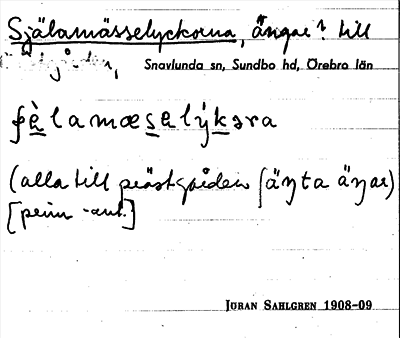 Själamässelyckorna, ängar i till
Snavlunda sn, Sundbo hd, Örebro län
ʃὲlamæselýkɘra
(alla till prästgården ʃäŋta äŋar)
JÖRAN SAHLGREN 1908-09